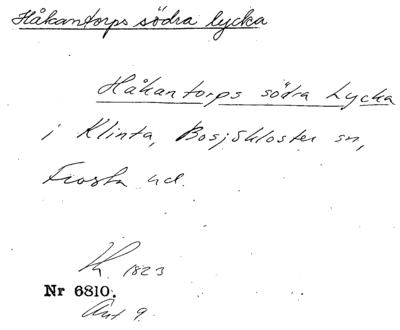 Håkantorps södra lycka
Håkantorps södra Lycka
i Klinta, Bosjökloster sn,
Frosta hd.
1823
Nr 6810.
Akt 9.